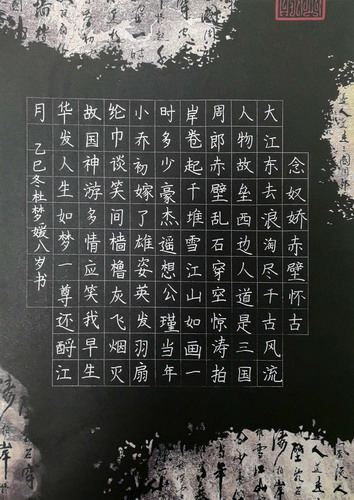 念奴娇赤壁怀古
大江东去浪淘尽千古风流
人物故垒西边人道是三国
周郎赤壁乱石穿空惊涛拍
岸卷起千堆雪江山如画一
时多少豪杰遥想公瑾当年
小乔初嫁了雄姿英发羽扇
纶巾谈笑间樯橹灰飞烟灭
故国神游多情应笑我早生
华发人生如梦一尊还酹江
月 乙巳冬杜梦媛八岁书